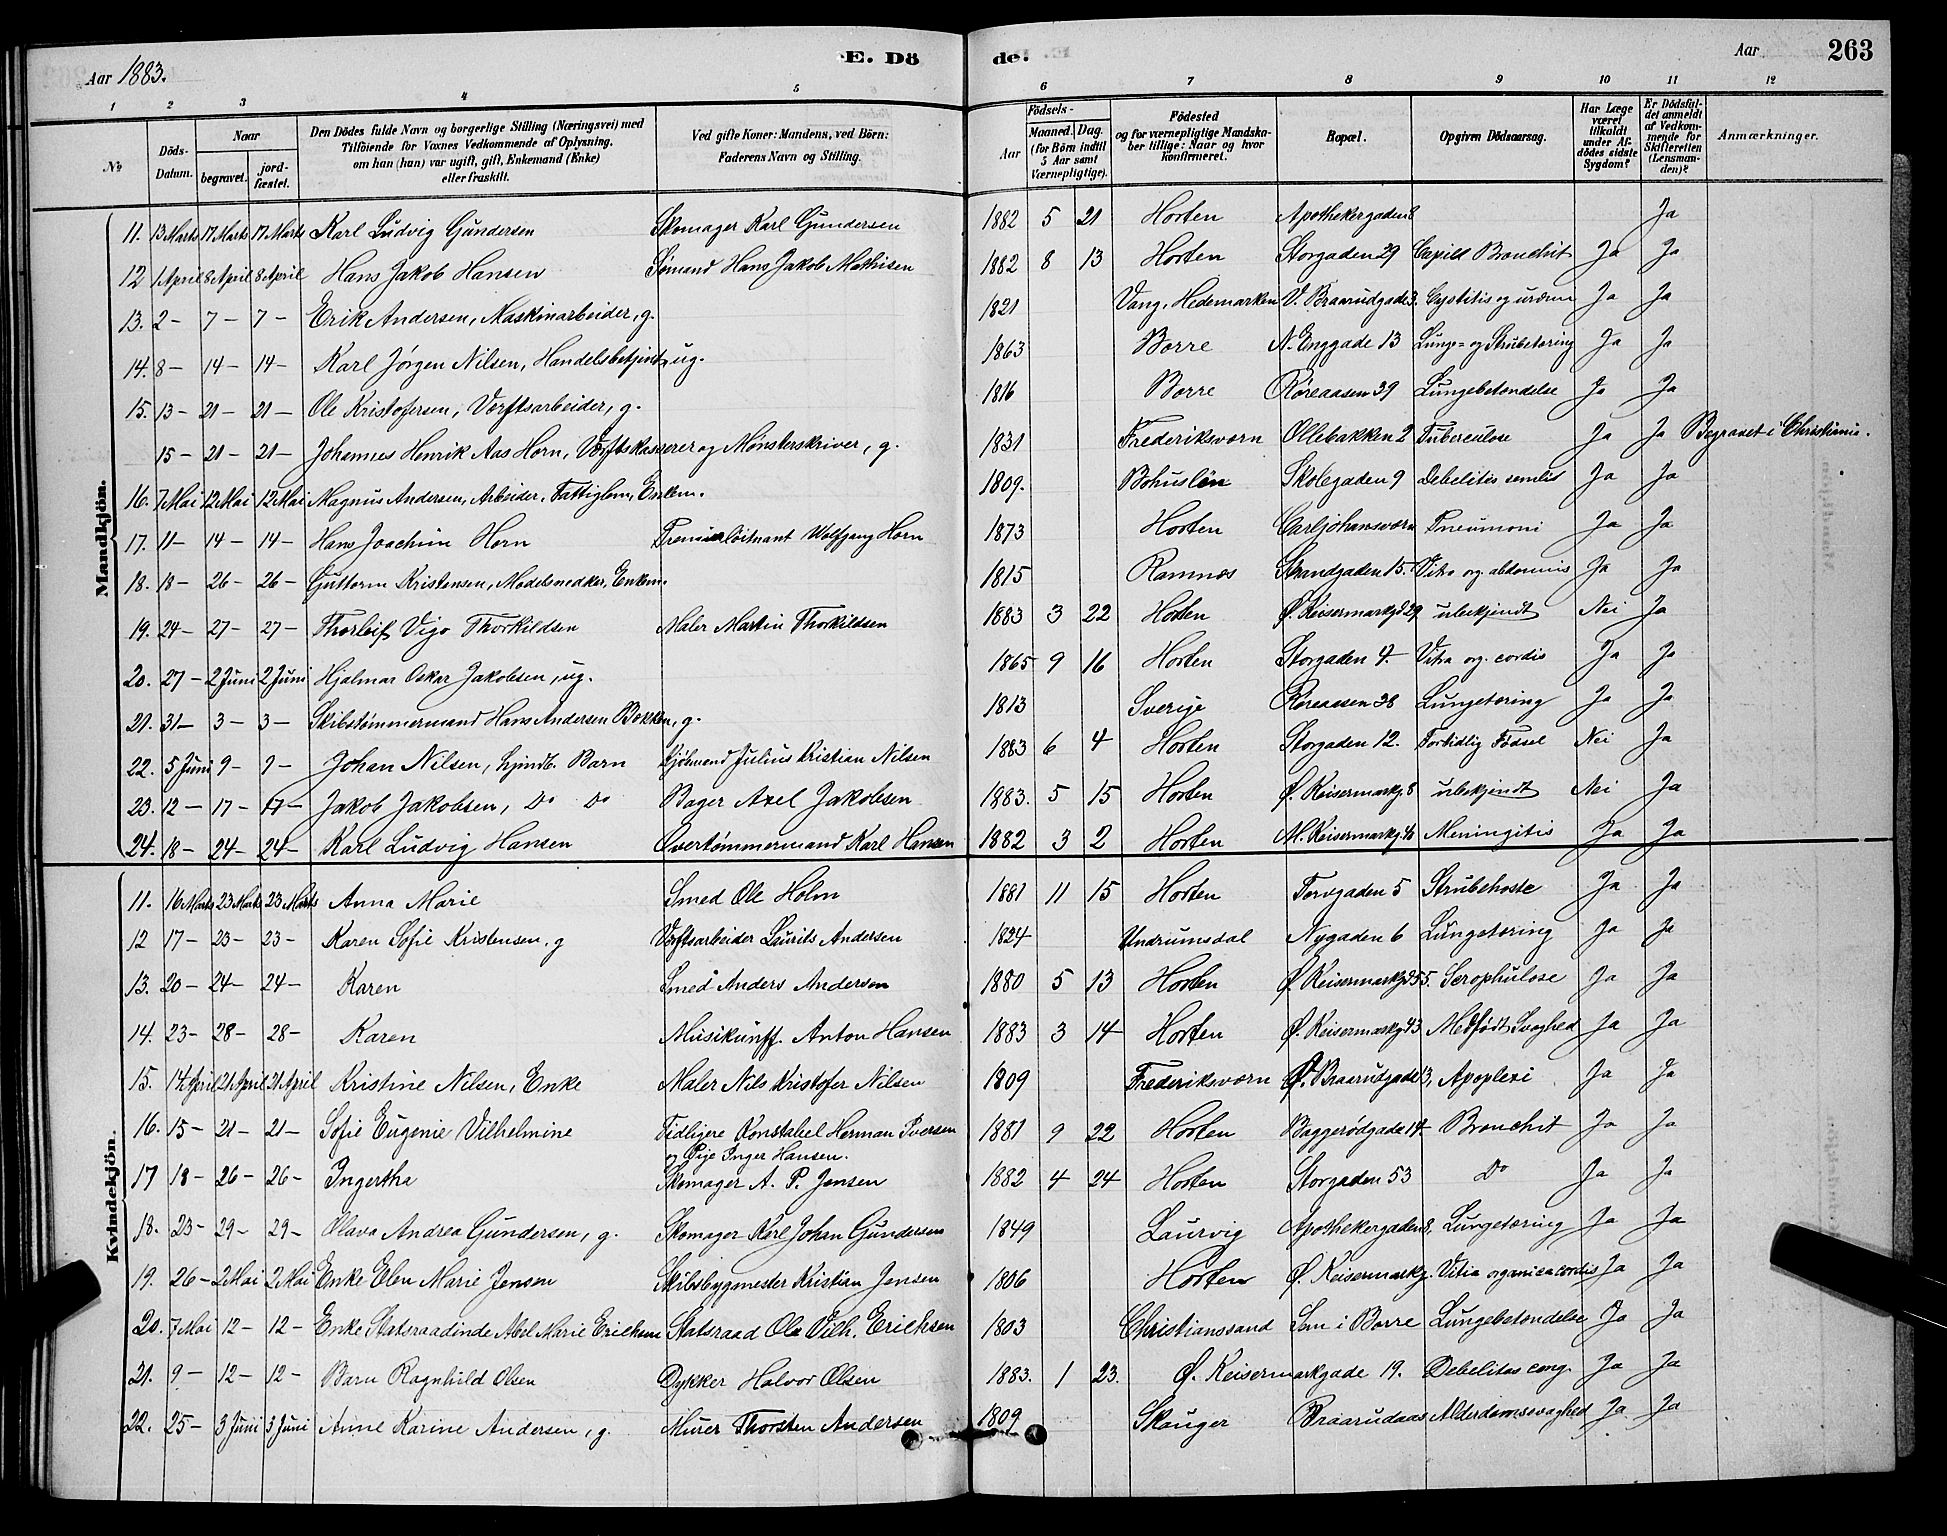 Aar 1883. E. Dö de. Aar 263
1 2 3 4 5 6 7 8 9 10 11 12
No
Döds-Datum.
Naar
begravet.
jord-fæstet.
Den Dödes fulde Navn og borgerlige Stilling (Næringsvei) med
Tilföiende for Voxnes Vedkommende af Oplysning,
om han (hun) var ugift, gift, Enkemand (Enke)
eller fraskilt.
Ved gifte Koner: Mandens, ved Börn:
Faderens Navn og Stilling.
Födsels-
Aar
Maaned. Dag.
(for Börn indtil
5 Aar samt
Værnepligtige).
Födested
og for værnepligtige Mandska-
ber tillige: Naar og hvor
konfirmeret.
Bopæl.
Opgiven Dödsaarsag.
Har Læge
været
tilkaldt
under Af-
dödes sidste
Sygdom?
Er Dödsfal-
det anmeldt
af Vedkom-
mende for
Skifteretten
(Lensman-
den)?
Anmærkninger.
Mandkjön.
11. 13 Marts 17 Marts 17 Marts Karl Ludvig Gundersen Skomager Karl Gundersen 1882 5 21 Horten Apothekergaden 8 Ja
12 1 April 8 April 8 April Hans Jakob Hansen Sømand Hans Jakob Mathisen 1882 8 13 Horten Storgaden 29 Capill Bronchit Ja Ja
13. 2 - 7 - 7 - Erik Andersen, Maskinarbeider, g. 1821 Vang, Hedemarken V. Braarudgade 3. Cystitis og uræmi Ja Ja
14. 8 - 14 - 14 - Karl Jørgen Nilsen, Handelsbetjent, ug. 1863 Borre N. Enggade 13 Lunge- og Strubetæring Ja Ja
15. 13 - 21 - 21 - Ole Kristofersen, Værftsarbeider, g. 1816 Borre Røreaasen 39 Lungebetændelse Ja Ja
15 - 21 - 21 - Johannes Henrik Aas Horn, Værftskasserer og Mønsterskriver, g. 1831 Frederiksværn Ollebakken 2 Tuberculose Ja Ja Begravet i Christiania.
16. 7 Mai 12 Mai 12 Mai Magnus Andersen, Arbeider, Fattiglem, Enkem. 1809. Bohuslän Skolegaden 9 Debelitis senilis Ja Ja
17. 11 - 14 - 14 - Hans Joachim Horn Premierløitnant Wolfgang Horn 1873 Horten Carljohansværn Pneumoni Ja Ja
18. 18 - 26 - 26 - Guttorm Kristensen, Modelsnedker, Enkem. 1815 Ramnæs Strandgaden 15. Vitia org. abdominis Ja Ja
19. 24 - 27 - 27 - Thorleif Vigo Thorkildsen Maler Martin Thorkildsen 1883 3 22 Horten Ø. Keisermarkgd 29 ubekjendt Nei Ja
20. 27 - 2 Juni 2 Juni Hjalmar Oskar Jakobsen, ug. 1865 9 16 Horten Storgaden 4. Vitia org. cordis Ja Ja
21. 31 - 3 - 3 - Skibstømmermand Hans Andersen Bakken, g. 1813 Sverige Røreaasen 38 Lungetæring Ja Ja
22. 5 Juni 9 - 9 - Johan Nilsen, hjmdb. Barn Sjømand Julius Kristian Nilsen 1883 6 4 Horten Storgaden 12. Fortidlig Fødsel Nei Ja
23. 12 - 17 - 17 - Jakob Jakobsen, Do Do Bager Axel Jakobsen 1883. 5 15 Horten Ø. Keisermarkg. 8 ubekjendt Nei Ja
24. 18 - 24 - 24 - Karl Ludvig Hansen Overtømmermand Karl Hansen 1882 3 2 Horten M. Keisermarkg. 16 Meningitis Ja Ja
Kvindekjön.
11. 16 Marts 23 Marts 23 Marts Anna Marie Smed Ole Holm 1881 11 15 Horten Torvgaden 5 Strubehoste Ja Ja
12 17 - 23 - 23 - Karen Sofie Kristensen, g Værftsarbeider Laurits Andersen 1824 Undrumsdal Nygaden 6 Lungetæring Ja Ja
13. 20 - 24 - 24 - Karen Smed Anders Andersen 1880 5 13 Horten Ø. Keisermarkgd 55. Scrophulose Ja Ja
14. 23 - 28 - 28 - Karen Musikunff. Anton Hansen 1883 3 14 Horten Ø. Keisermarkg. 43 Medfødt Svaghed Ja Ja
15. 14 April 21 April 21 April Kristine Nilsen, Enke Maler Nils Kristofer Nilsen 1809 Frederiksværn Ø. Braarudgade 13, Apoplexi Ja Ja
16. 15 - 21 - 21 - Sofie Eugenie Vilhelmine Tidligere Konstabel Herman Iversen 1881 9 22 Horten Baggerødgade 14. Bronchit Ja Ja
og Pige Inger Hansen.
17 18 - 26 - 26 - Ingertha Skomager A. P. Jensen 1882 4 24 Horten Storgaden 53 Do Ja Ja
18. 23 - 29 - 29 - Olava Andrea Gundersen, g. Skomager Karl Johan Gundersen 1849 Laurvig Apothekergaden 8, Lungetæring Ja Ja
19. 26 - 2 Mai 2 Mai Enke Elen Marie Jensen Skibsbygmester Kristian Jensen 1806 Horten Ø. Keisermarkg. Vitia organica cordis Ja Ja
20. 7 Mai 12 - 12 - Enke Statsraadinde Abel Marie Erichsen Statsraad Ole Vilh. Erichsen 1803 Christianssand Sem i Borre Lungebetændelse Ja Ja
21. 9 - 12 - 12 - Barn Ragnhild Olsen Dykker Halvor Olsen 1883. 1 23. Ø. Keisermarkgade 19. Debelitas cong. Ja Ja
22. 25 - 3 Juni 3 Juni Anne Karine Andersen, g. Murer Thorsten Andersen 1809 Skauger Braarudaas Alderdomssvaghed Ja Ja